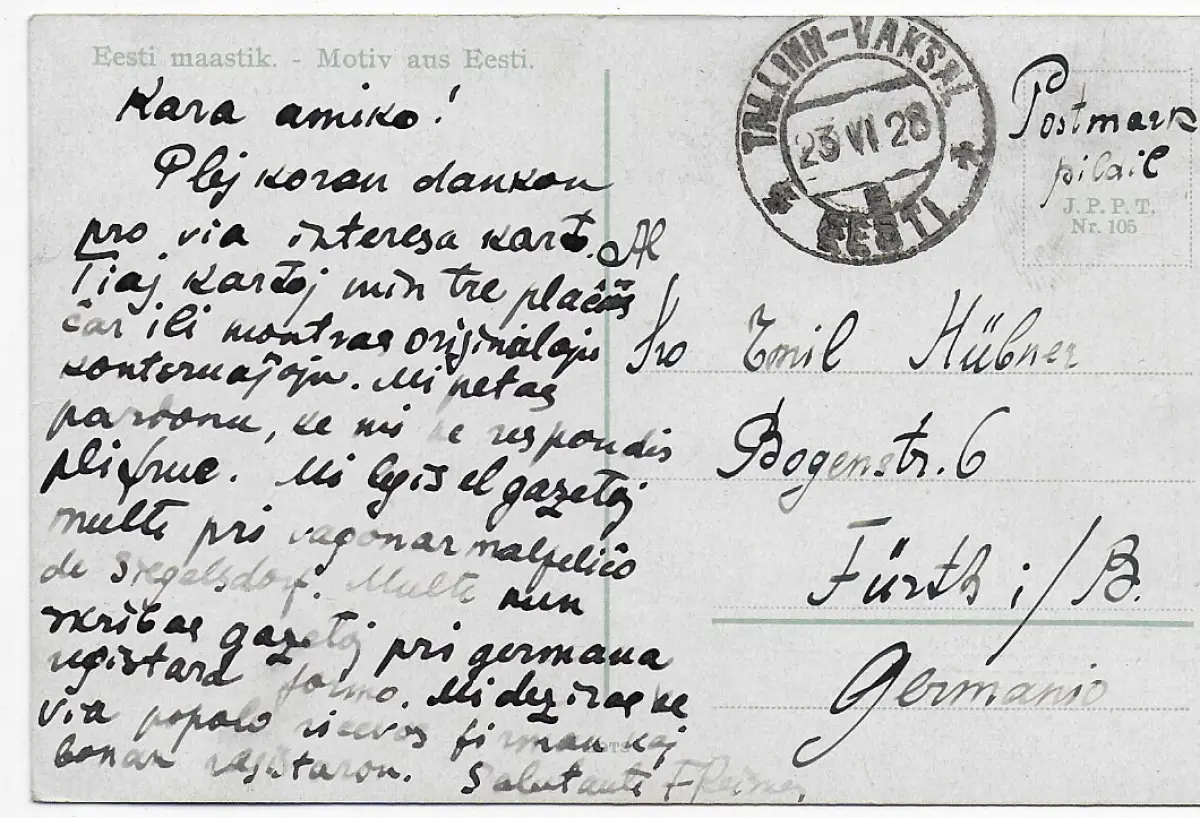 Eesti maastik. - Motiv aus Eesti.
Kara amiko!
Plej koran dankon
pro via interesa karto.
Tiaj kartoj min tre plaĉas
ĉar ili montras originalajn
Mi petas
pardonu, ke mi ne respondis
pli frue. Mi legis el gazetoj
multe pri vagonar malfeliĉo
de Siegelsdorf. Multe nun
skribas gazetoj pri germana
registara formo. Mi deziras ke
via popolo ricevos firman kaj
bonan registaron. Salutante
TALLINN-VAKSAL
23 VI 28
EESTI
Postmark
pildil
J. P. P. T.
Nr. 105
Al
Sro Emil Hübner
Bogenstr. 6
Fürth i/B.
Germanio